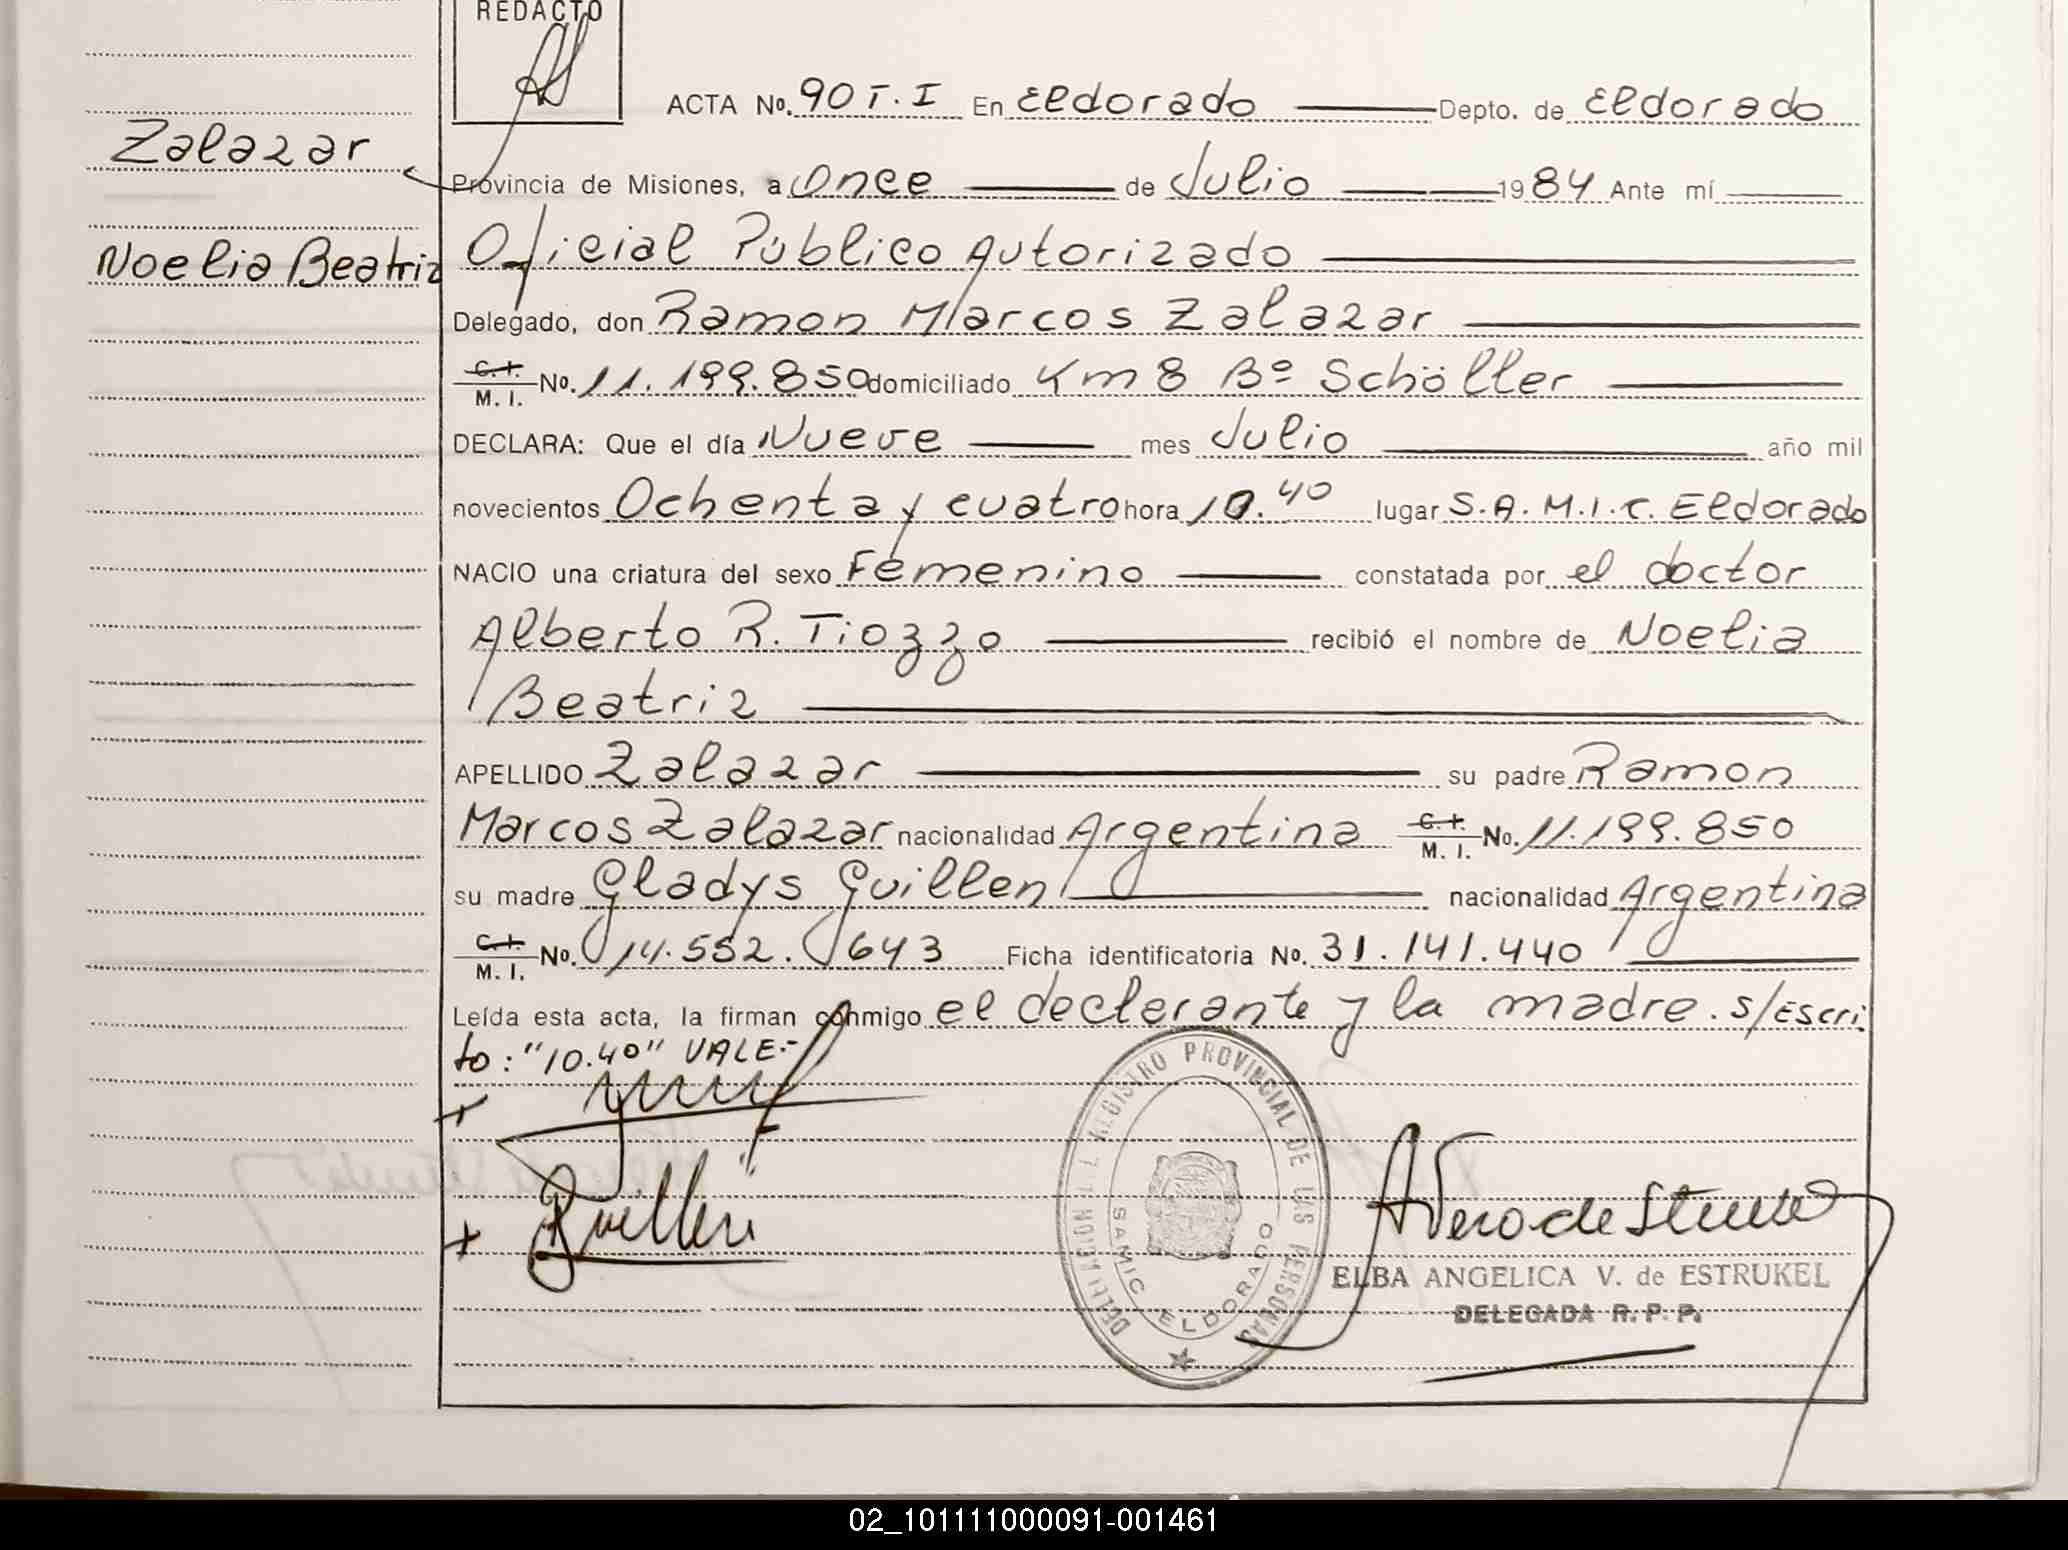 REDACTO
ACTA No. 90 T. I En Eldorado Depto. de Eldorado
Zalazar
Provincia de Misiones, a once de Julio 1984 Ante mí
Noelia Beatriz
Oficial Público Autorizado
Delegado, don Ramon Marcos Zalazar
C. I. / M. I. No. 11.199.850 domiciliado Km 8 Bº Schöller
DECLARA: Que el día Nueve mes Julio año mil
novecientos Ochenta y cuatro hora 10.40 lugar S.A.M.I.C. Eldorado
NACIO una criatura del sexo Femenino constatada por el doctor
Alberto R. Tiozzo recibió el nombre de Noelia
Beatriz
APELLIDO Zalazar su padre Ramon
Marcos Zalazar nacionalidad Argentina C. I. / M. I. No. 11.199.850
su madre Gladys Guillen nacionalidad Argentina
C. I. / M. I. No. 14.552.643 Ficha identificatoria No. 31.141.440
Leída esta acta, la firman conmigo el declarante y la madre. s/Escri
to: "10.40" VALE.-
Guillen
REGISTRO PROVINCIAL DE LAS PERSONAS
SAMIC ELDORADO
ELBA ANGELICA V. de ESTRUKEL
DELEGADA R. P. P.
02_101111000091-001461